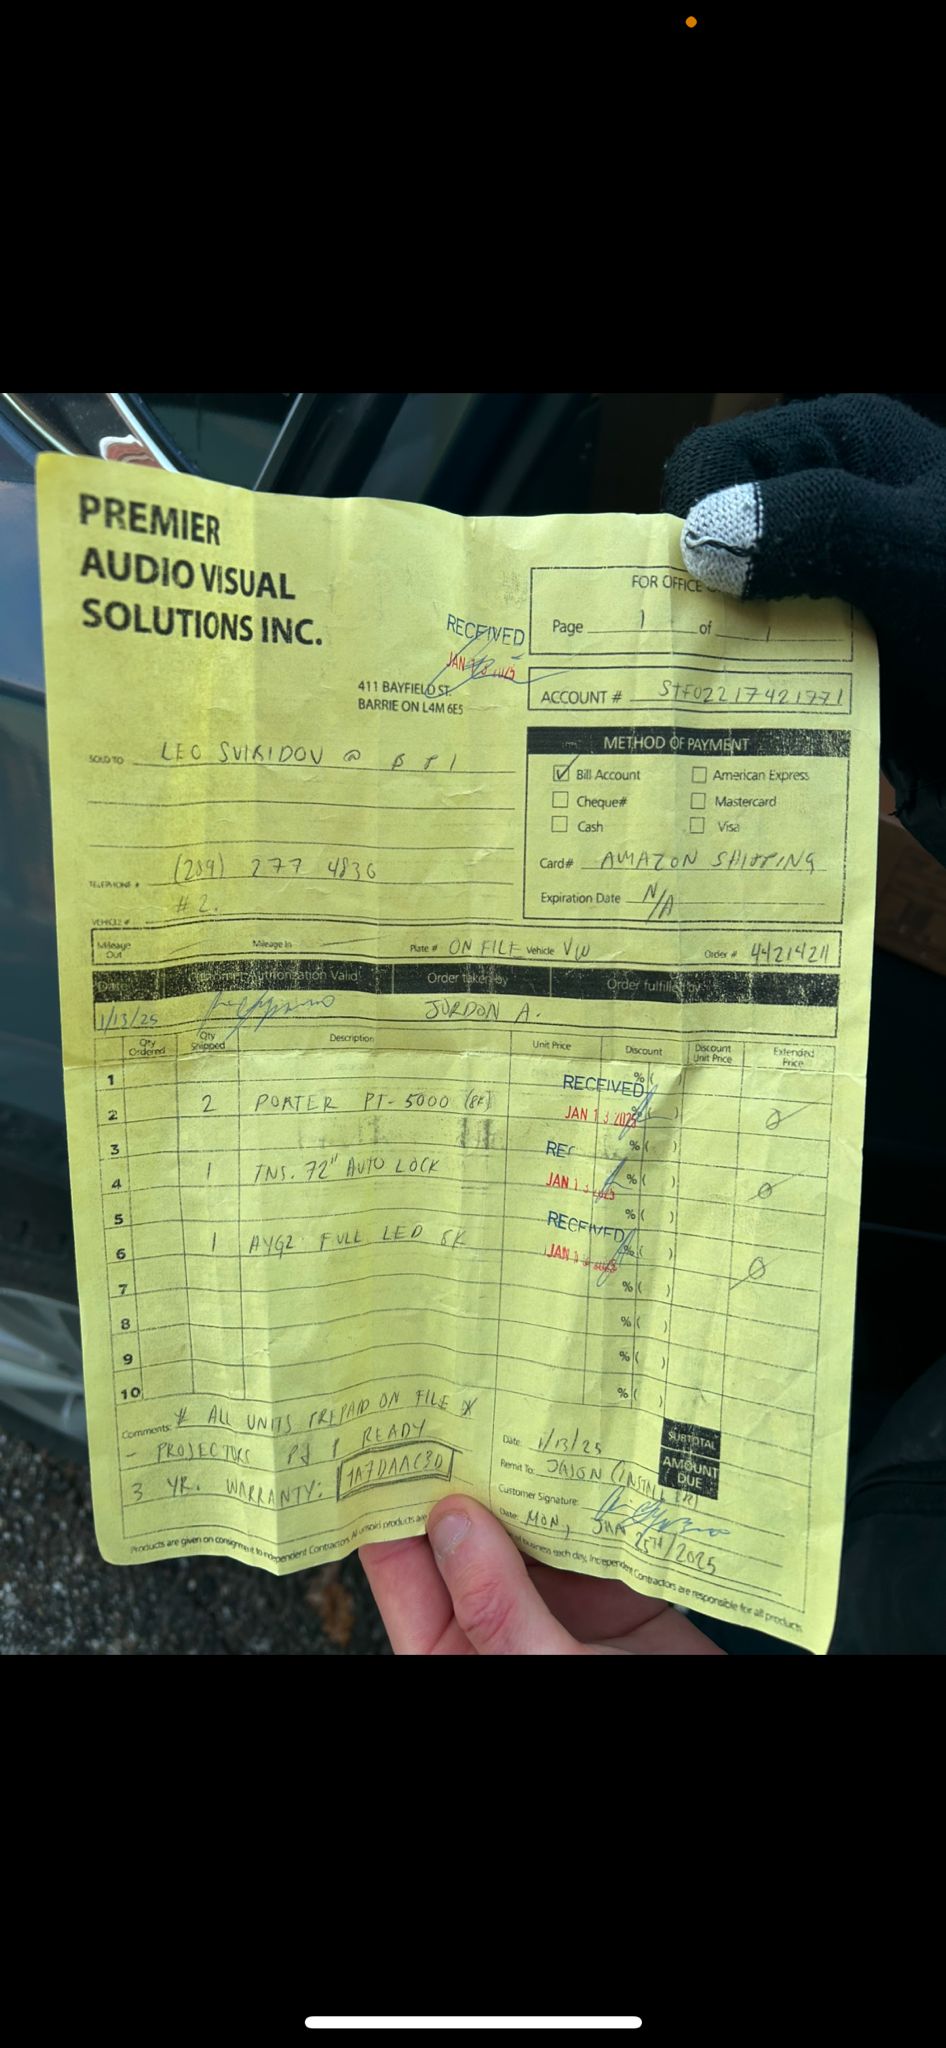 PREMIER
AUDIO VISUAL
SOLUTIONS INC.
RECEIVED
JAN 2025
411 BAYFIELD ST.
BARRIE ON L4M 6E5
FOR OFFICE
Page 1 of 1
ACCOUNT # STF02217421771
SOLD TO LEO SVIRIDOV @
TELEPHONE # (289) 277 4836
VEHICLE # #2.
METHOD OF PAYMENT
✓ Bill Account
American Express
Cheque#
Mastercard
Cash
Visa
Card# AMAZON SHIPPING
Expiration Date N/A
Mileage Out
Mileage In
Plate # ON FILE Vehicle VW Order # 44214211
Date Authorization Valid Order taken by Order fulfilled by
1/13/25 JORDON A.
Qty Ordered Qty Shipped Description Unit Price Discount Discount Unit Price Extended Price
1 % ( )
RECEIVED
2 2 PORTER PT-5000 (8K) JAN 13 2025 Ø
3 % ( )
4 1 INS. 72" AUTO LOCK REC JAN 13 % ( ) Ø
5 % ( )
RECEIVED
6 1 AYGZ FULL LED 8K JAN % ( ) Ø
7 % ( )
8 % ( )
9 % ( )
10 % ( )
Comments: * ALL UNITS PREPAID ON FILE *
- PROJECTORS READY
3 YR. WARRANTY: 1A7DAAC3D
SUBTOTAL
AMOUNT DUE
Date: 1/13/25
Remit To: JASON (INSTALLER)
Customer Signature:
Date: MON, JAN 25TH/2025
Products are given on consignment to independent Contractors. All unsold products are
of business each day. Independent Contractors are responsible for all products